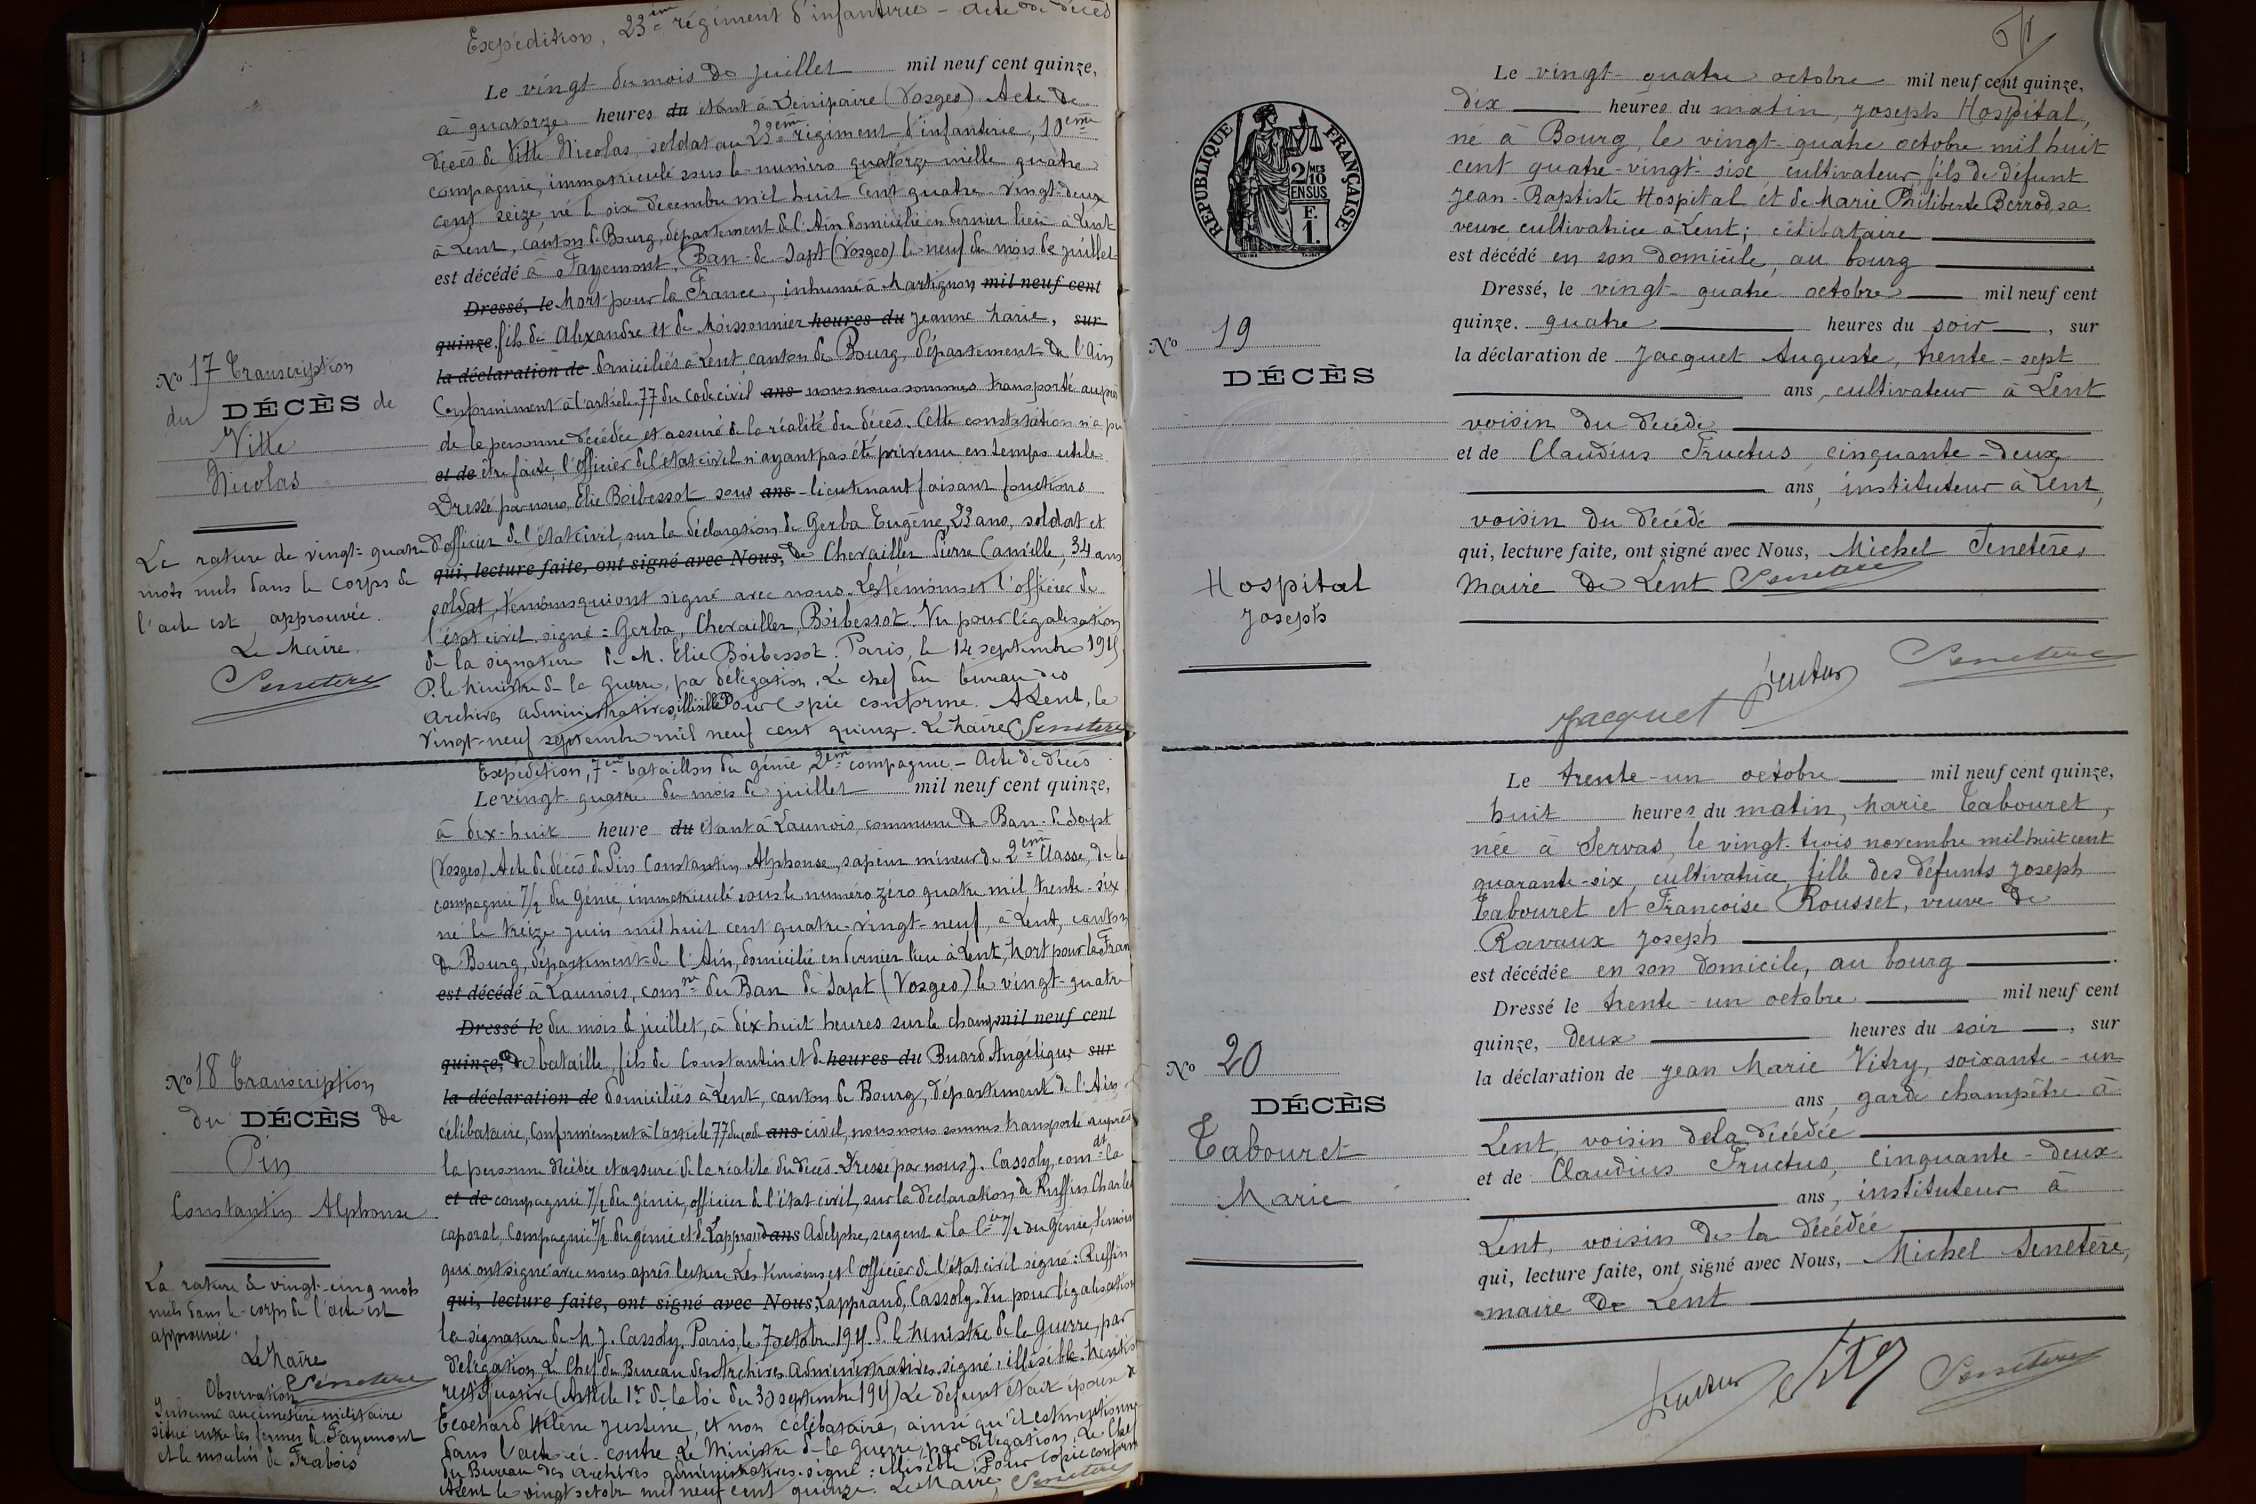 Expédition, 23ème régiment d'infanterie - acte de décès
Le vingt du mois de juillet mil neuf cent quinze,
à quatorze heures du étant à Denipaire (Vosges) Acte de
décès de Vitte Nicolas, soldat au 23ème régiment d'infanterie, 10ème
compagnie, immatriculé sous le numéro quatorze mille quatre
cent seize, né le six décembre mil huit cent quatre-vingt-deux
à Lent, canton de Bourg, département de l'Ain domicilié en dernier lieu à Lent
est décédé à Fayemont, Ban-de-Sapt (Vosges) le neuf du mois de juillet
Dressé, le Mort pour la France, inhumé à Martignon mil neuf cent
quinze, fils de Alexandre et de Moissonnier heures du Jeanne Marie, sur
la déclaration de domiciliés à Lent, canton de Bourg, département de l'Ain
Conformément à l'article 77 du Code civil ans nous nous sommes transporté auprès
de la personne décédée et assuré de la réalité du décès. Cette constatation n'a pu
et de être faite, l'officier de l'état civil n'ayant pas été prévenu en temps utile
Dressé par nous, Elie Boibessot sous ans-lieutenant faisant fonctions
d'officier de l'état civil, sur la déclaration de Gerba Eugène, 23 ans, soldat et
qui, lecture faite, ont signé avec Nous, de Chevailler Pierre Camille, 34 ans
soldat, témoins qui ont signé avec nous. Les témoins et l'officier de
l'état civil signé = Gerba, Chevailler, Boibessot. Vu pour légalisation
de la signature de M. Elie Boibessot. Paris, le 14 septembre 1915
P. le Ministre de la guerre, par délégation, Le chef du bureau des
archives administratives, illisible Pour copie conforme. A Lent, le
vingt-neuf septembre mil neuf cent quinze. Le Maire Senetère
No 17 Transcription
du DÉCÈS de
Vitte
Nicolas
La rature de vingt-quatre
mots nuls dans le corps de
l'acte est approuvée.
Le Maire.
Senetère
Expédition, 7me bataillon du génie, 2ème compagnie - Acte de décès
Le vingt-quatre du mois de juillet mil neuf cent quinze,
à dix-huit heure du étant à Launois, commune de Ban-de-Sapt
(Vosges) Acte de décès de Pin Constantin Alphonse, sapeur mineur de 2ème Classe, de la
compagnie 7/2 du Génie, immatriculé sous le numéro zéro quatre mil trente-six
né le treize juin mil huit cent quatre-vingt-neuf, à Lent, canton
de Bourg, département de l'Ain, domicilié en dernier lieu à Lent, Mort pour la Fran
est décédé à Launois, comne du Ban de Sapt (Vosges) le vingt-quatre
Dressé le du mois de juillet, à dix-huit heures sur le champ mil neuf cent
quinze, de bataille, fils de Constantin et de heures du Buard Angélique sur
la déclaration de domiciliés à Lent, canton de Bourg, département de l'Ain
célibataire, Conformément à l'article 77 du code ans civil, nous nous sommes transporté auprès
la personne décédée et assuré de la réalité du décès. Dressé par nous J. Cassoly, comdt la
et de compagnie 7/2 du génie, officier de l'état civil, sur la déclaration de Ruffin Charles
caporal, Compagnie 7/2 du génie et de Lapprand ans Adelphe, sergent à la Cie 7/2 du Génie, témoins
qui ont signé avec nous après lecture. Les témoins et l'officier de l'état civil signé : Ruffin
qui, lecture faite, ont signé avec Nous, Lapprand, Cassoly. Vu pour légalisation
la signature de M J. Cassoly. Paris, le 7 octobre 1915. P. le Ministre de la Guerre, par
délégation, Le Chef du Bureau des Archives administratives signé, illisible.
(Article 1er de la loi du 30 septembre 1915) Le défunt était époux de
Hélène Justine, et non célibataire, ainsi qu'il est mentionné
dans l'acte ci-contre. Le Ministre de la Guerre, par délégation, Le Chef
du Bureau des archives administratives. signé : illisible. Pour copie conforme
A Lent le vingt octobre mil neuf cent quinze. Le Maire, Senetère
No 18 Transcription
du DÉCÈS de
Pin
Constantin Alphonse
La rature de vingt-cinq mots
nuls dans le corps de l'acte est
approuvée.
Le Maire
Senetère
Observation
Inhumé au cimetière militaire
situé entre les fermes de Fayemont
et le moulin de Frabois
Le vingt-quatre octobre mil neuf cent quinze,
dix heures du matin, Joseph Hospital,
né à Bourg, le vingt-quatre octobre mil huit
cent quatre-vingt-six cultivateur, fils de défunt
Jean-Baptiste Hospital et de Marie Philiberte Berrod, sa
veuve, cultivatrice à Lent; célibataire
est décédé en son domicile, au bourg
Dressé, le vingt-quatre octobre mil neuf cent
quinze. quatre heures du soir, sur
la déclaration de Jacquet Auguste, trente-sept
ans, cultivateur à Lent
voisin du décédé
et de Claudius Fructus, cinquante-deux
ans, instituteur à Lent,
voisin du décédé
qui, lecture faite, ont signé avec Nous, Michel Senetère,
maire de Lent Senetère
Jacquet Fructus Senetère
RÉPUBLIQUE FRANÇAISE
2/10MES
EN SUS
F.
1.
No 19
DÉCÈS
Hospital
Joseph
Le trente-un octobre mil neuf cent quinze,
huit heures du matin, Marie Tabouret,
née à Servas, le vingt-trois novembre mil huit cent
quarante-six, cultivatrice, fille des défunts Joseph
Tabouret et Françoise Rousset, veuve de
Ravaux Joseph
est décédée en son domicile, au bourg
Dressé le trente-un octobre mil neuf cent
quinze, deux heures du soir, sur
la déclaration de Jean Marie Vitry, soixante-un
ans, garde champêtre à
Lent, voisin de la décédée
et de Claudius Fructus, cinquante-deux
ans, instituteur à
Lent, voisin de la décédée
qui, lecture faite, ont signé avec Nous, Michel Senetère,
maire de Lent
Fructus Vitry Senetère
No 20
DÉCÈS
Tabouret
Marie